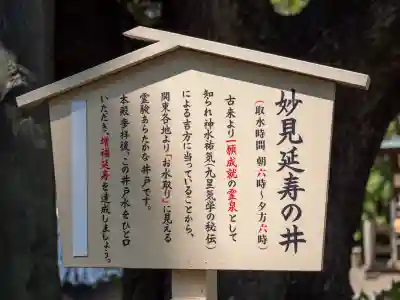 妙見延寿の井
(取水時間 朝六時〜夕方六時)
古来より一願成就の霊泉として
知られ神水祐気(九星気学の秘伝)
による吉方に当っていることから、
関東各地より「お水取り」に見える
霊験あらたかな井戸です。
本殿参拝後、この井戸水をひと口
いただき、増福延寿を達成しましょう。